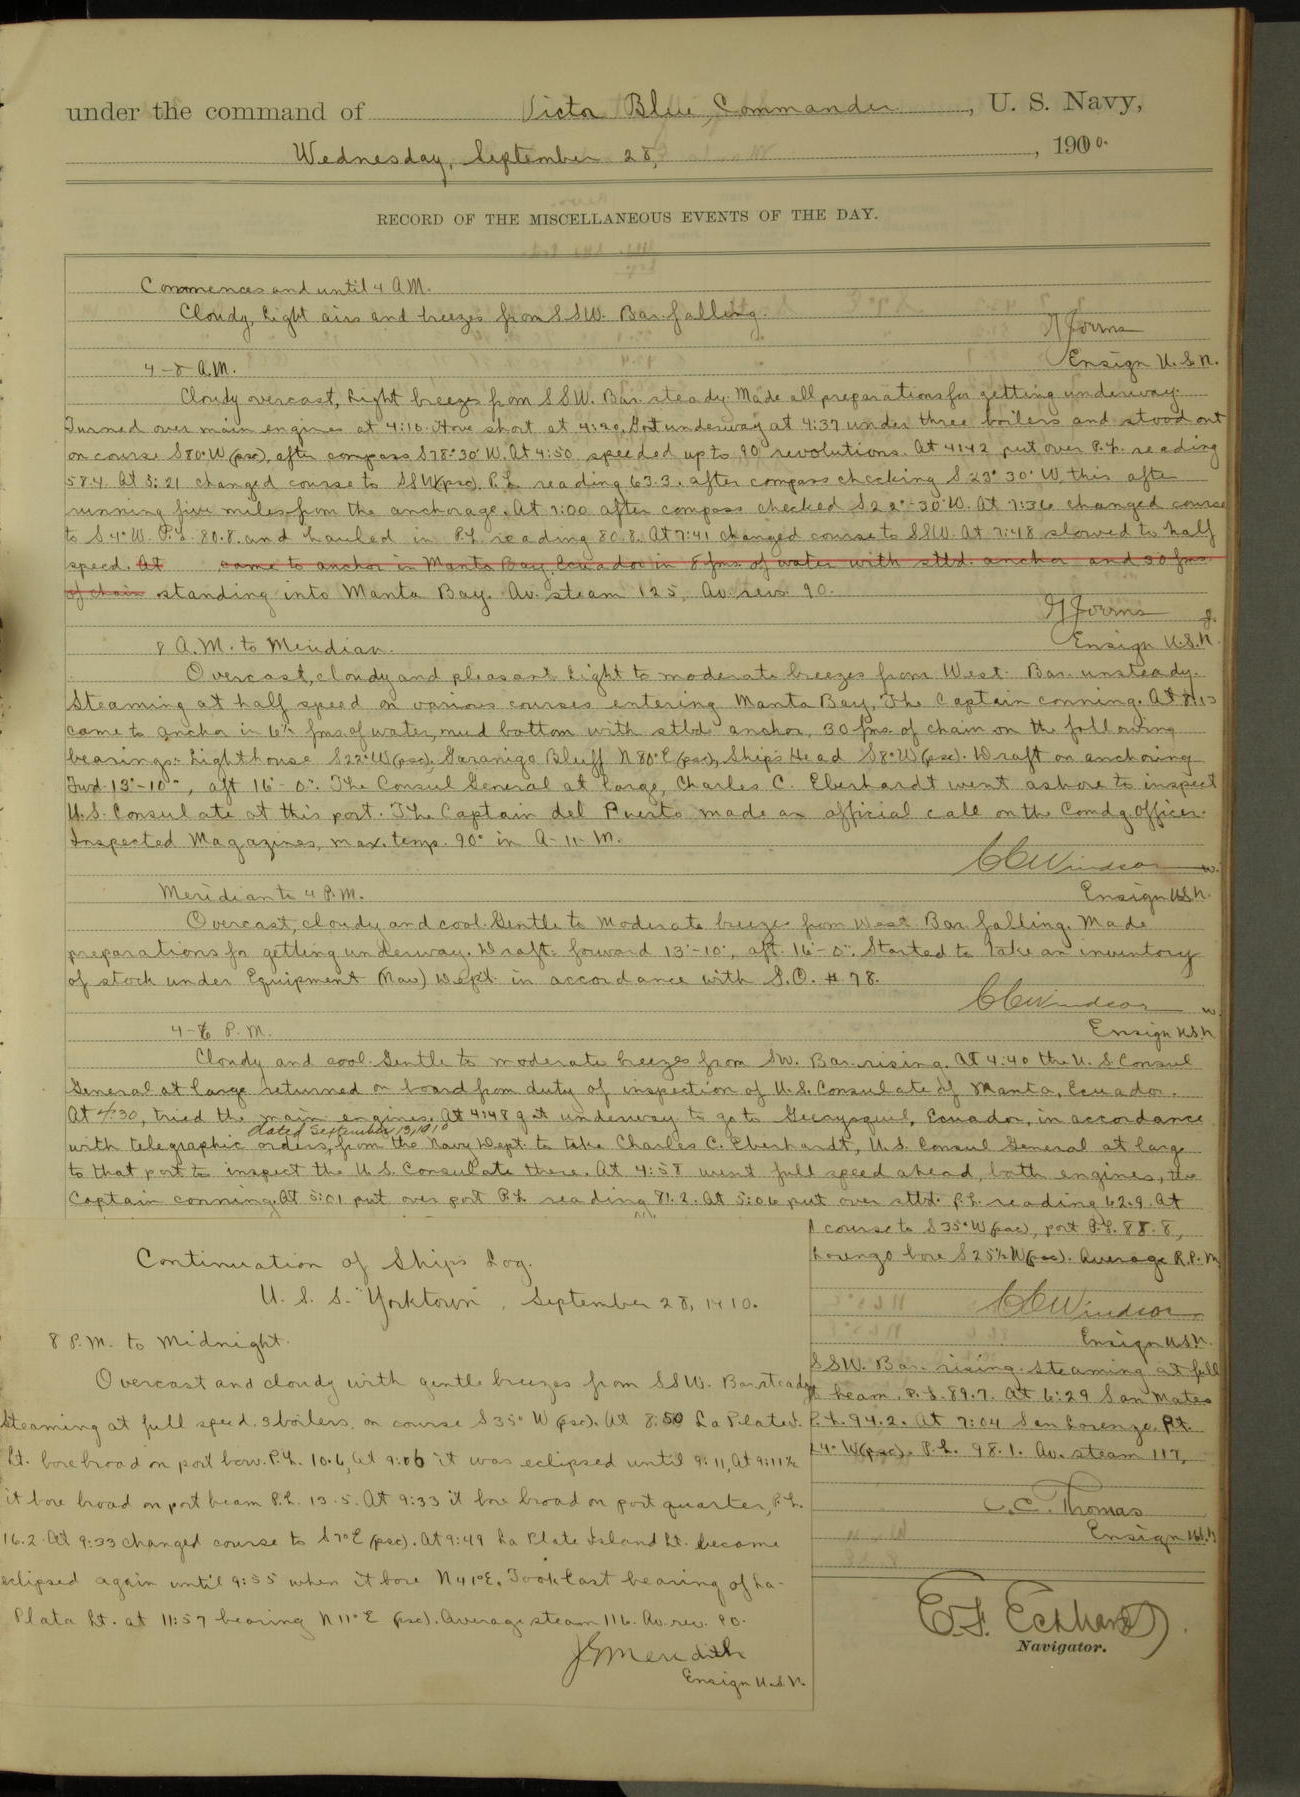 under the command of Victor Blue, Commander, U. S. Navy,
Wednesday, September 28, 190
RECORD OF THE MISCELLANEOUS EVENTS OF THE DAY.
Commences and until 4 A.M.
Cloudy, Light airs and breezes from SSW. Bar. falling.
Ensign U.S.N.
4-8 A.M.
Cloudy overcast, Light breezes from SSW. Bar. steady. Made all preparations for getting underway.
Turned over main engines at 4:10. Hove short at 4:20. Got underway at 4:37 under three boilers and stood out
on course S80°W (psc), after compass S78°30'W. At 4:50 speeded up to 90 revolutions. At 4:42 put over P.L. reading
58.4. At 5:21 changed course to SSW(psc). P.L. reading 63.3. after compass checking S 23° 30' W, this after
running five miles from the anchorage. At 7:00 after compass checked S22°-30'W. At 7:36 changed course
to S 4° W. P.L. 80.8. and hauled in P.L. reading 80.8. At 7:41 changed course to SSW. At 7:48 slowed to half
speed. At came to anchor in Manta Bay, Ecuador in 8 fms. of water with stbd. anchor and 30 fms.
of chain standing into Manta Bay. Av. steam 125, Av. revs. 90.
Ensign U.S.N.
8 A.M. to Meridian.
Overcast, cloudy and pleasant. Light to moderate breezes from West. Bar. unsteady.
Steaming at half speed on various courses entering Manta Bay, The Captain conning. At 8:13
came to anchor in 6½ fms. of water, mud bottom with stbd. anchor, 30 fms. of chain on the following
bearings: Lighthouse S22°W(psc), Bluff N80°E(psc), Ship's Head S8°W(psc). Draft on anchoring
Fwd. 13'-10", aft 16'-0". The Consul General at large, Charles C. Eberhardt went ashore to inspect
U.S. Consulate at this port. The Captain del Puerto made an official call on the Comdg. Officer.
Inspected Magazines, max. temp. 90° in A-11-M.
C C Windsor
Ensign U.S.N.
Meridian to 4 P.M.
Overcast, cloudy and cool. Gentle to Moderate breeze from West. Bar. falling. Made
preparations for getting underway. Draft: forward 13'-10", aft. 16'-0". Started to take an inventory
of stock under Equipment (Nav) Dept. in accordance with S.O. # 78.
C C Windsor
Ensign U.S.N.
4-6 P.M.
Cloudy and cool. Gentle to moderate breezes from SW. Bar. rising. At 4:40 the U. S. Consul
General at large returned on board from duty of inspection of U.S. Consulate of Manta, Ecuador.
At 4:30, tried the main engines. At 4:48 got underway to go to Guayaquil, Ecuador, in accordance
dated September 13, 1910
with telegraphic orders, from the Navy Dept. to take Charles C. Eberhardt, U.S. Consul General at large
to that port to inspect the U.S. Consulate there. At 4:58 went full speed ahead, both engines, the
Captain conning. At 5:01 put over port P.L. reading 81.2. At 5:06 put over stbd. P.L. reading 62.9. At
course to S35°W(psc), port P.L. 88.8,
Lorenzo bore S25½W(psc). Average R.P.M.
C C Windsor
Ensign U.S.N.
SSW. Bar. rising. Steaming at full
beam. P.L. 89.7. At 6:29 San Mateo
P.L. 94.2. At 7:04 San Lorenzo. Pt.
W(psc). P.L. 98.1. Av. steam 117,
C. C. Thomas
Ensign U.S.N.
E. F. Eckhardt
Navigator.
Continuation of Ship's Log.
U. S. S. "Yorktown", September 28, 1910.
8 P.M. to Midnight.
Overcast and cloudy with gentle breezes from SSW. Bar. steady
Steaming at full speed, 3 boilers, on course S35° W (psc). At 8:50 La Plata I.
Lt. bore broad on port bow. P.L. 10.6, at 9:06 it was eclipsed until 9:11, At 9:11½
it bore broad on port beam P.L. 13.5. At 9:33 it bore broad on port quarter, P.L.
16.2. At 9:33 changed course to S7°E (psc). At 9:49 La Plata Island Lt. became
eclipsed again until 9:55 when it bore N41°E. Took last bearing of La-
Plata Lt. at 11:57 bearing N11°E (psc). Average steam 116. Av. rev. 90.
J Meredith
Ensign U.S.N.